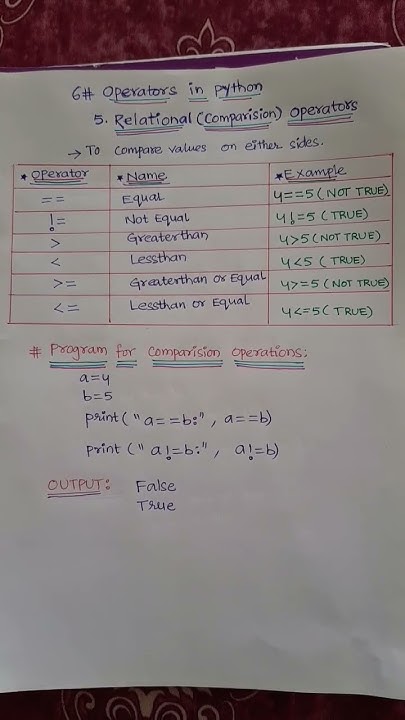 6# Operators in python
5. Relational (Comparision) Operators
→ To compare values on either sides.
* Operator * Name * Example
== Equal 4==5 (NOT TRUE)
!= Not Equal 4!=5 (TRUE)
> Greaterthan 4>5 (NOT TRUE)
< Lessthan 4<5 (TRUE)
>= Greaterthan or Equal 4>=5 (NOT TRUE)
<= Lessthan or Equal 4<=5 (TRUE)
# Program for Comparision Operations:
a=4
b=5
print("a==b:", a==b)
print("a!=b:", a!=b)
OUTPUT: False
True